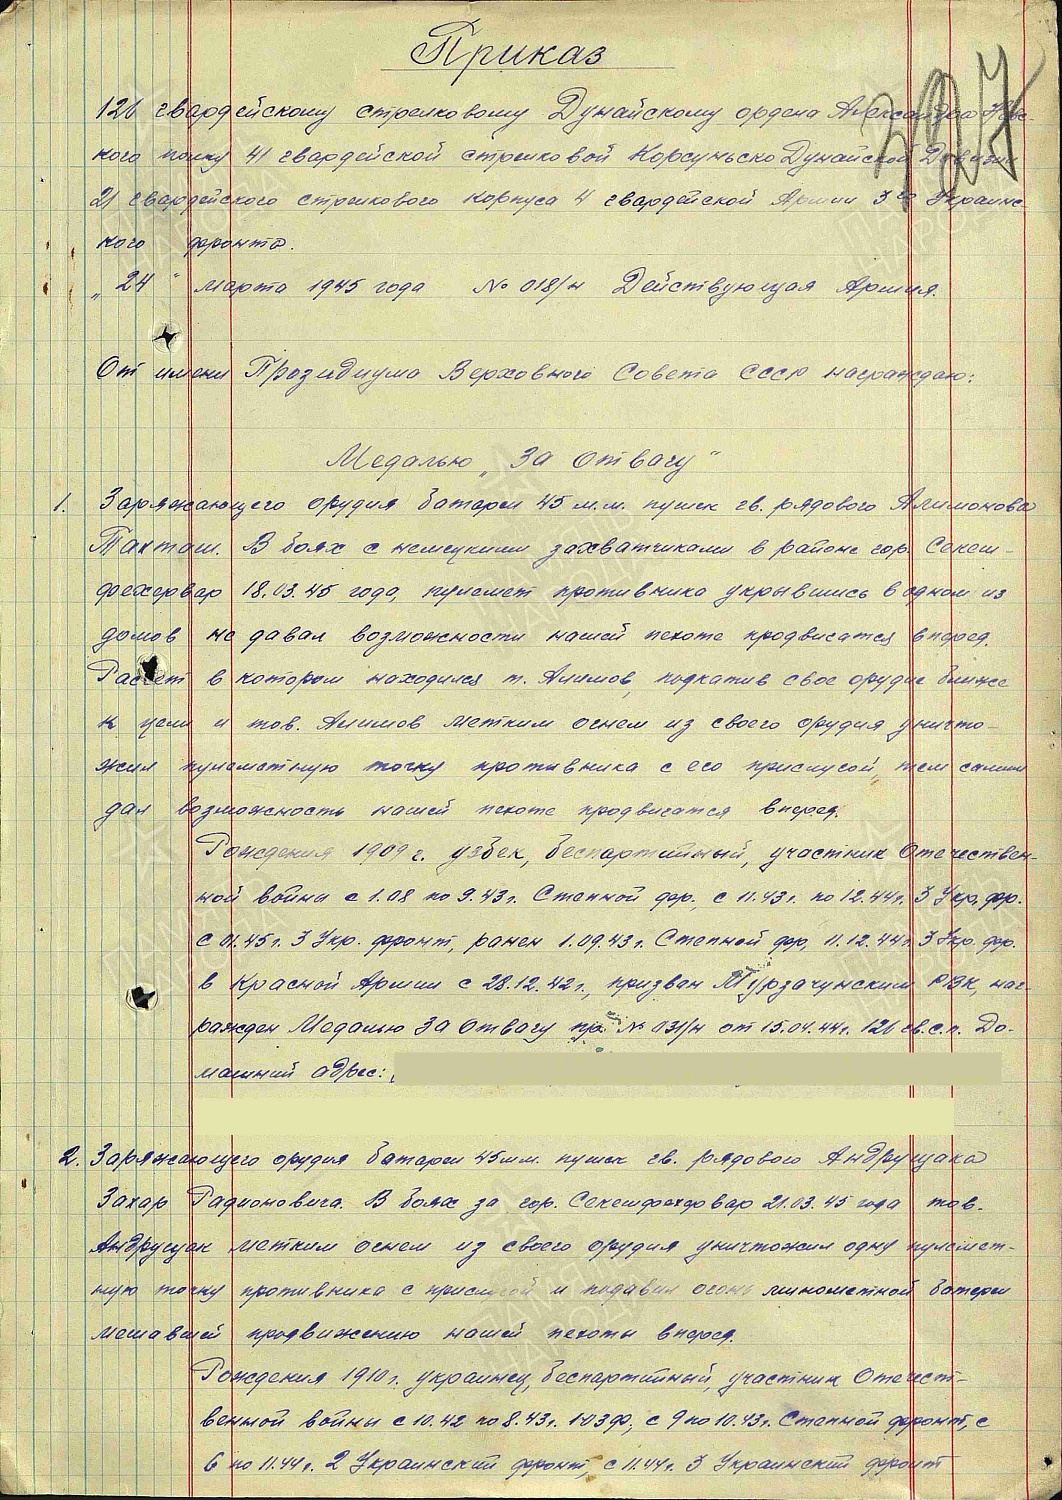 Приказ
126 гвардейскому стрелковому Дунайскому ордена Александра Невс-
кого полку 41 гвардейской стрелковой Корсуньско Дунайской Дивизии
21 гвардейского стрелкового корпуса 4 гвардейской Армии 3го Украинс-
кого фронта.
„24“ марта 1945 года № 018/н Действующая Армия.
От имени Президиума Верховного Совета СССР награждаю:
Медалью „За Отвагу“
1. Заряжающего орудия батареи 45 м.м. пушек гв. рядового Алимонова
Тахташ. В боях с немецкими захватчиками в районе гор. Секеш-
фехервар 18.03.45 года, пулемет противника укрывшись в одном из
домов не давал возможности нашей пехоте продвигатся вперед.
Расчет в котором находился т. Алимов, подкатив свое орудие ближе
к цели и тов. Алимов метким огнем из своего орудия уничто-
жил пулеметную точку противника с его прислугой, тем самым
дал возможность нашей пехоте продвигатся вперед.
Рождения 1909 г. узбек, беспартийный, участник Отечествен-
ной войны с 1.08 по 9.43г. Степной фр., с 11.43г. по 12.44г. 3 Укр. фр.
с 01.45г. 3 Укр. фронт, ранен 1.09.43г. Степной фр, 11.12.44г. 3 Укр. фр.
в Красной Армии с 28.12.42г., призван Мурзачунским РВК, наг-
ражден Медалью За Отвагу пр. № 031/н от 15.04.44г. 126 гв.с.п. До-
машний адрес:
2. Заряжающего орудия батареи 45мм. пушек гв. рядового Андрущака
Захар Радионовича. В боях за гор. Секешфехервар 21.03.45 года тов.
Андрущак метким огнем из своего орудия уничтожил одну пулемет-
ную точку противника с прислугой и подавил огонь минометной батареи
мешавшей продвижению нашей пехоты вперед.
Рождения 1910г. украинец, беспартийный, участник Отечест-
венной войны с 10.42 по 8.43г. ЮЗФ, с 9 по 10.43г. Степной фронт, с
6 по 11.44г. 2 Украинский фронт, с 11.44г. 3 Украинский фронт